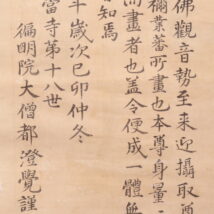 佛觀音勢至來迎攝取
彌業蕃所畫也本尊身量
而畫者也盖令便成一體無
知焉
年歲次己卯仲冬
當寺第十八世
徧明院大僧都澄覺謹